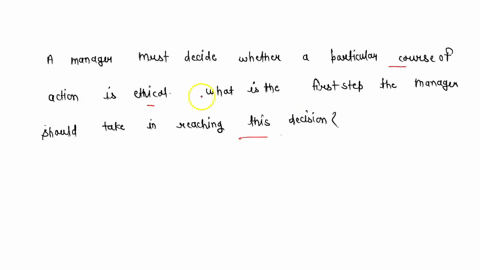 A manager must decide whether a particular course of
action is ethical. what is the first step the manager
should take in reaching this decision?